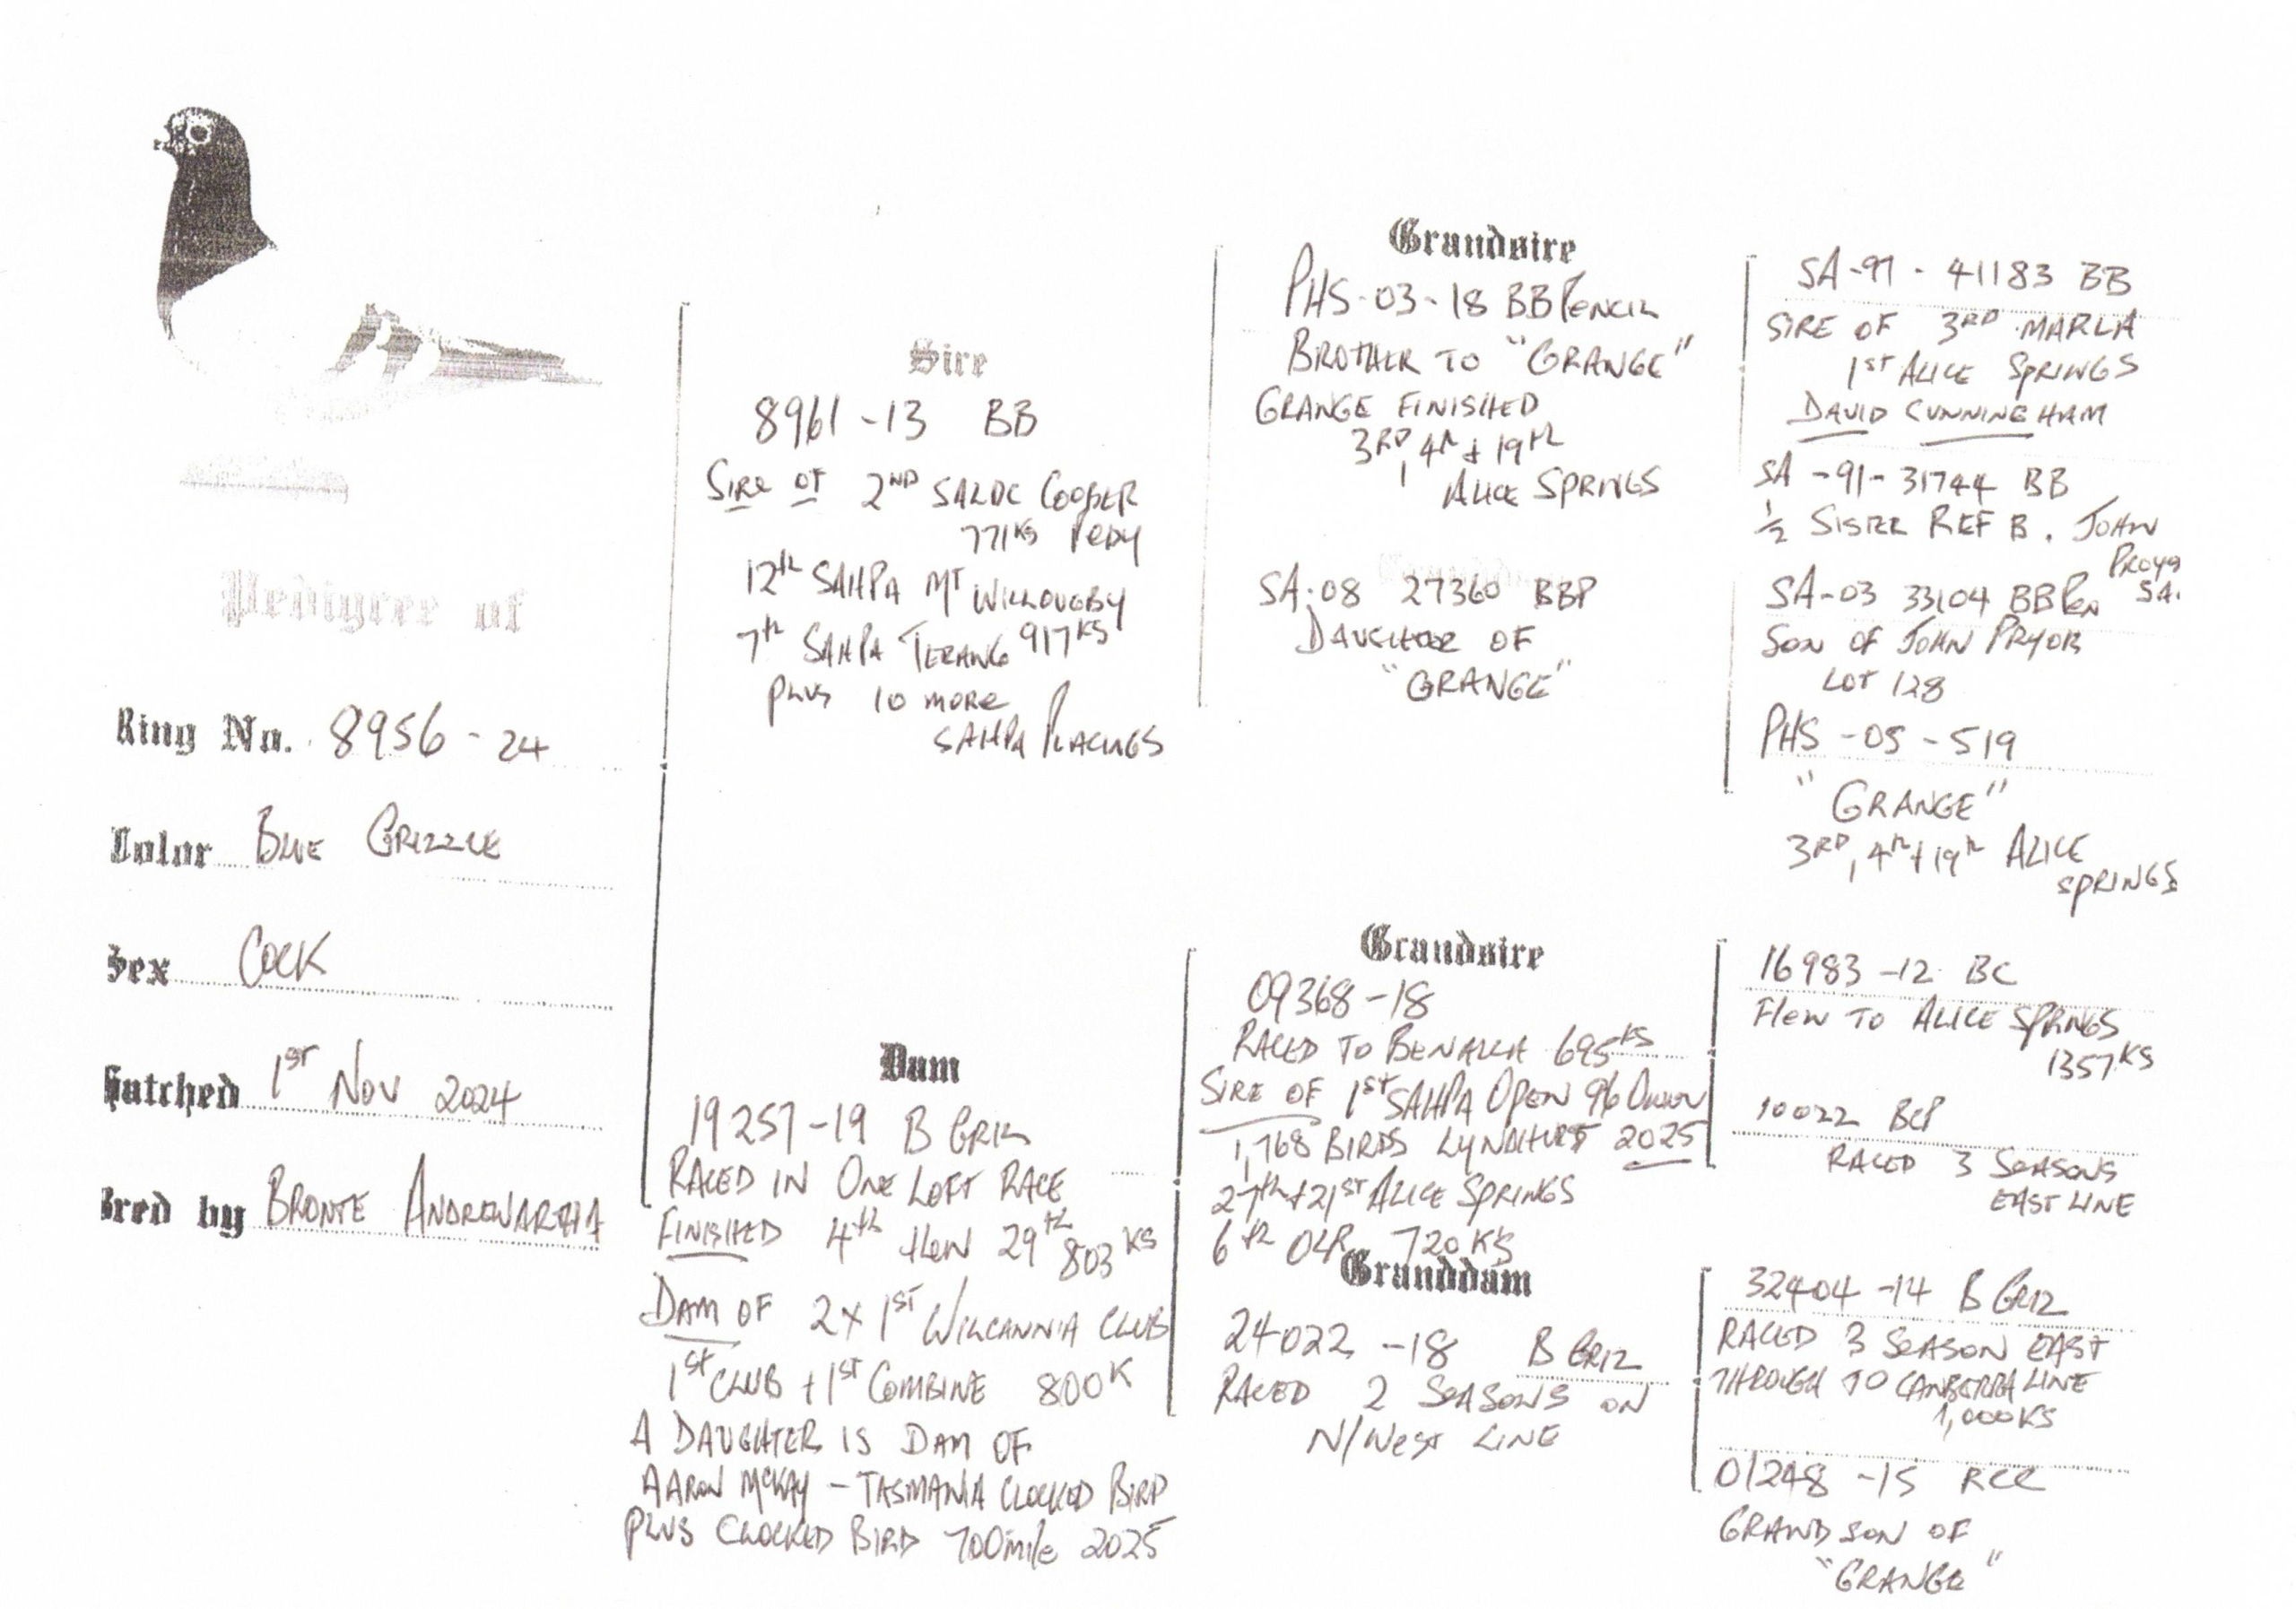 Pedigree of
Ring No. 8956 - 24
Color BLUE GRIZZLE
Sex COCK
Hatched 1ST NOV 2024
Bred by BRONTE ANDREWARTHA
Sire
8961 - 13 BB
SIRE OF 2ND SALDC COOBER
771KS PEDY
12th SAHPA MT WILLOUGBY
7th SAHPA TERANG 917KS
PLUS 10 MORE
SAHPA PLACINGS
Dam
19257-19 B GRIZ
RACED IN ONE LOFT RACE
FINISHED 4th then 29th 803KS
DAM OF 2X 1ST WILCANNIA CLUB
1ST CLUB + 1ST COMBINE 800K
A DAUGHTER IS DAM OF
AARON MCKAY - TASMANIA CLOCKED BIRD
PLUS CLOCKED BIRD 700mile 2025
Grandsire
PHS-03-18 BB PENCIL
BROTHER TO "GRANGE"
GRANGE FINISHED
3RD, 4th + 19th
ALICE SPRINGS
Granddam
SA-08 27360 BBP
DAUGHTER OF
"GRANGE"
Grandsire
09368-18
RACED TO BENALLA 695KS
SIRE OF 1ST SAHPA OPEN 96
1,768 BIRDS LYNDHURST 2025
27th + 21ST ALICE SPRINGS
6th OLR 720KS
Granddam
24022-18 B GRIZ
RACED 2 SEASONS ON
N/WEST LINE
SA-91-41183 BB
SIRE OF 3RD MARLA
1ST ALICE SPRINGS
DAVID CUNNINGHAM
SA-91-31744 BB
1/2 SISTER REF B. JOHN
SA.
SA-03 33104 BB Pen
SON OF JOHN PRYOR
LOT 128
PHS-05-519
"GRANGE"
3RD, 4th + 19th ALICE
SPRINGS
16983-12 BC
FLEW TO ALICE SPRINGS
1357KS
10022 BCP
RACED 3 SEASONS
EAST LINE
32404-14 B GRIZ
RACED 3 SEASON EAST
THROUGH TO CANBERRA LINE
1,000KS
01248-15 RCC
GRANDSON OF
"GRANGE"